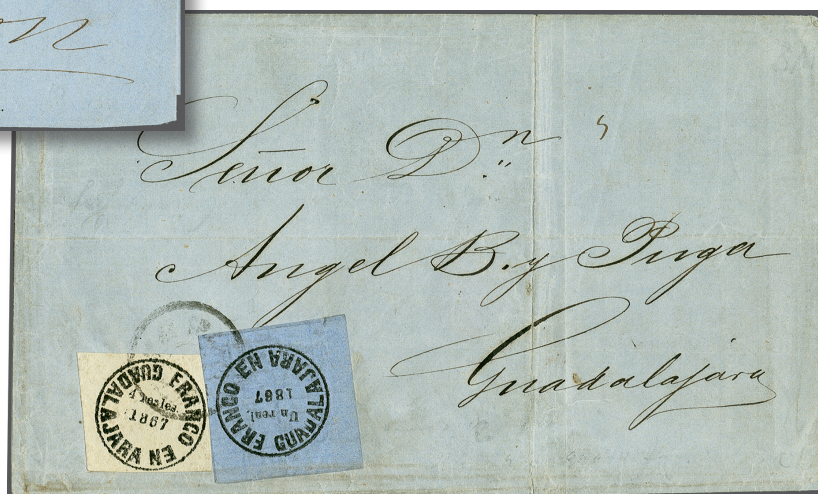 Señor Dn
Angel B. y Puga
Guadalajára
FRANCO EN GUADALAJARA
1867
FRANCO EN GUADALAJARA
Un real
1867